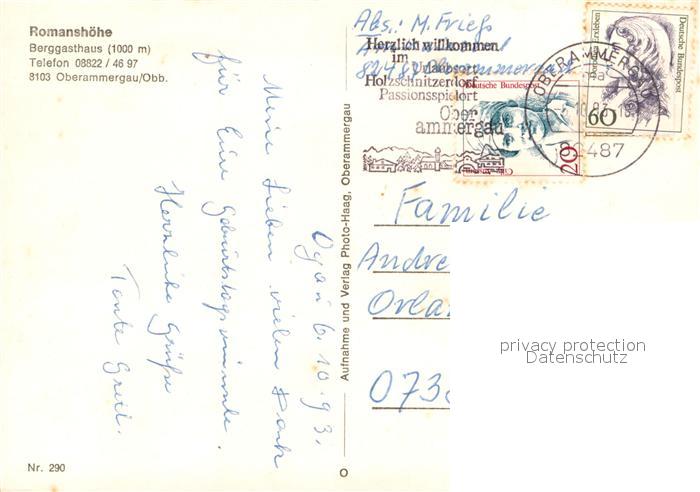 Romanshöhe
Berggasthaus (1000 m)
Telefon 08822 / 46 97
8103 Oberammergau/Obb.
Ogau 6.10.93.
Meine Lieben vielen Dank
für Eure Geburtstagswünsche.
Herzliche Grüße
Tante Gretl.
Nr. 290
Aufnahme und Verlag Photo-Haag, Oberammergau
Abs: M. Frieß
82487 Oberammergau
Herzlich willkommen
im Urlaubsort
Holzschnitzerdorf
Passionsspielort
Ober
ammergau
OBERAMMERGAU
10.93
82487
Deutsche Bundespost
20
Deutsche Bundespost
60
Familie
Andre
Orla
073
privacy protection
Datenschutz